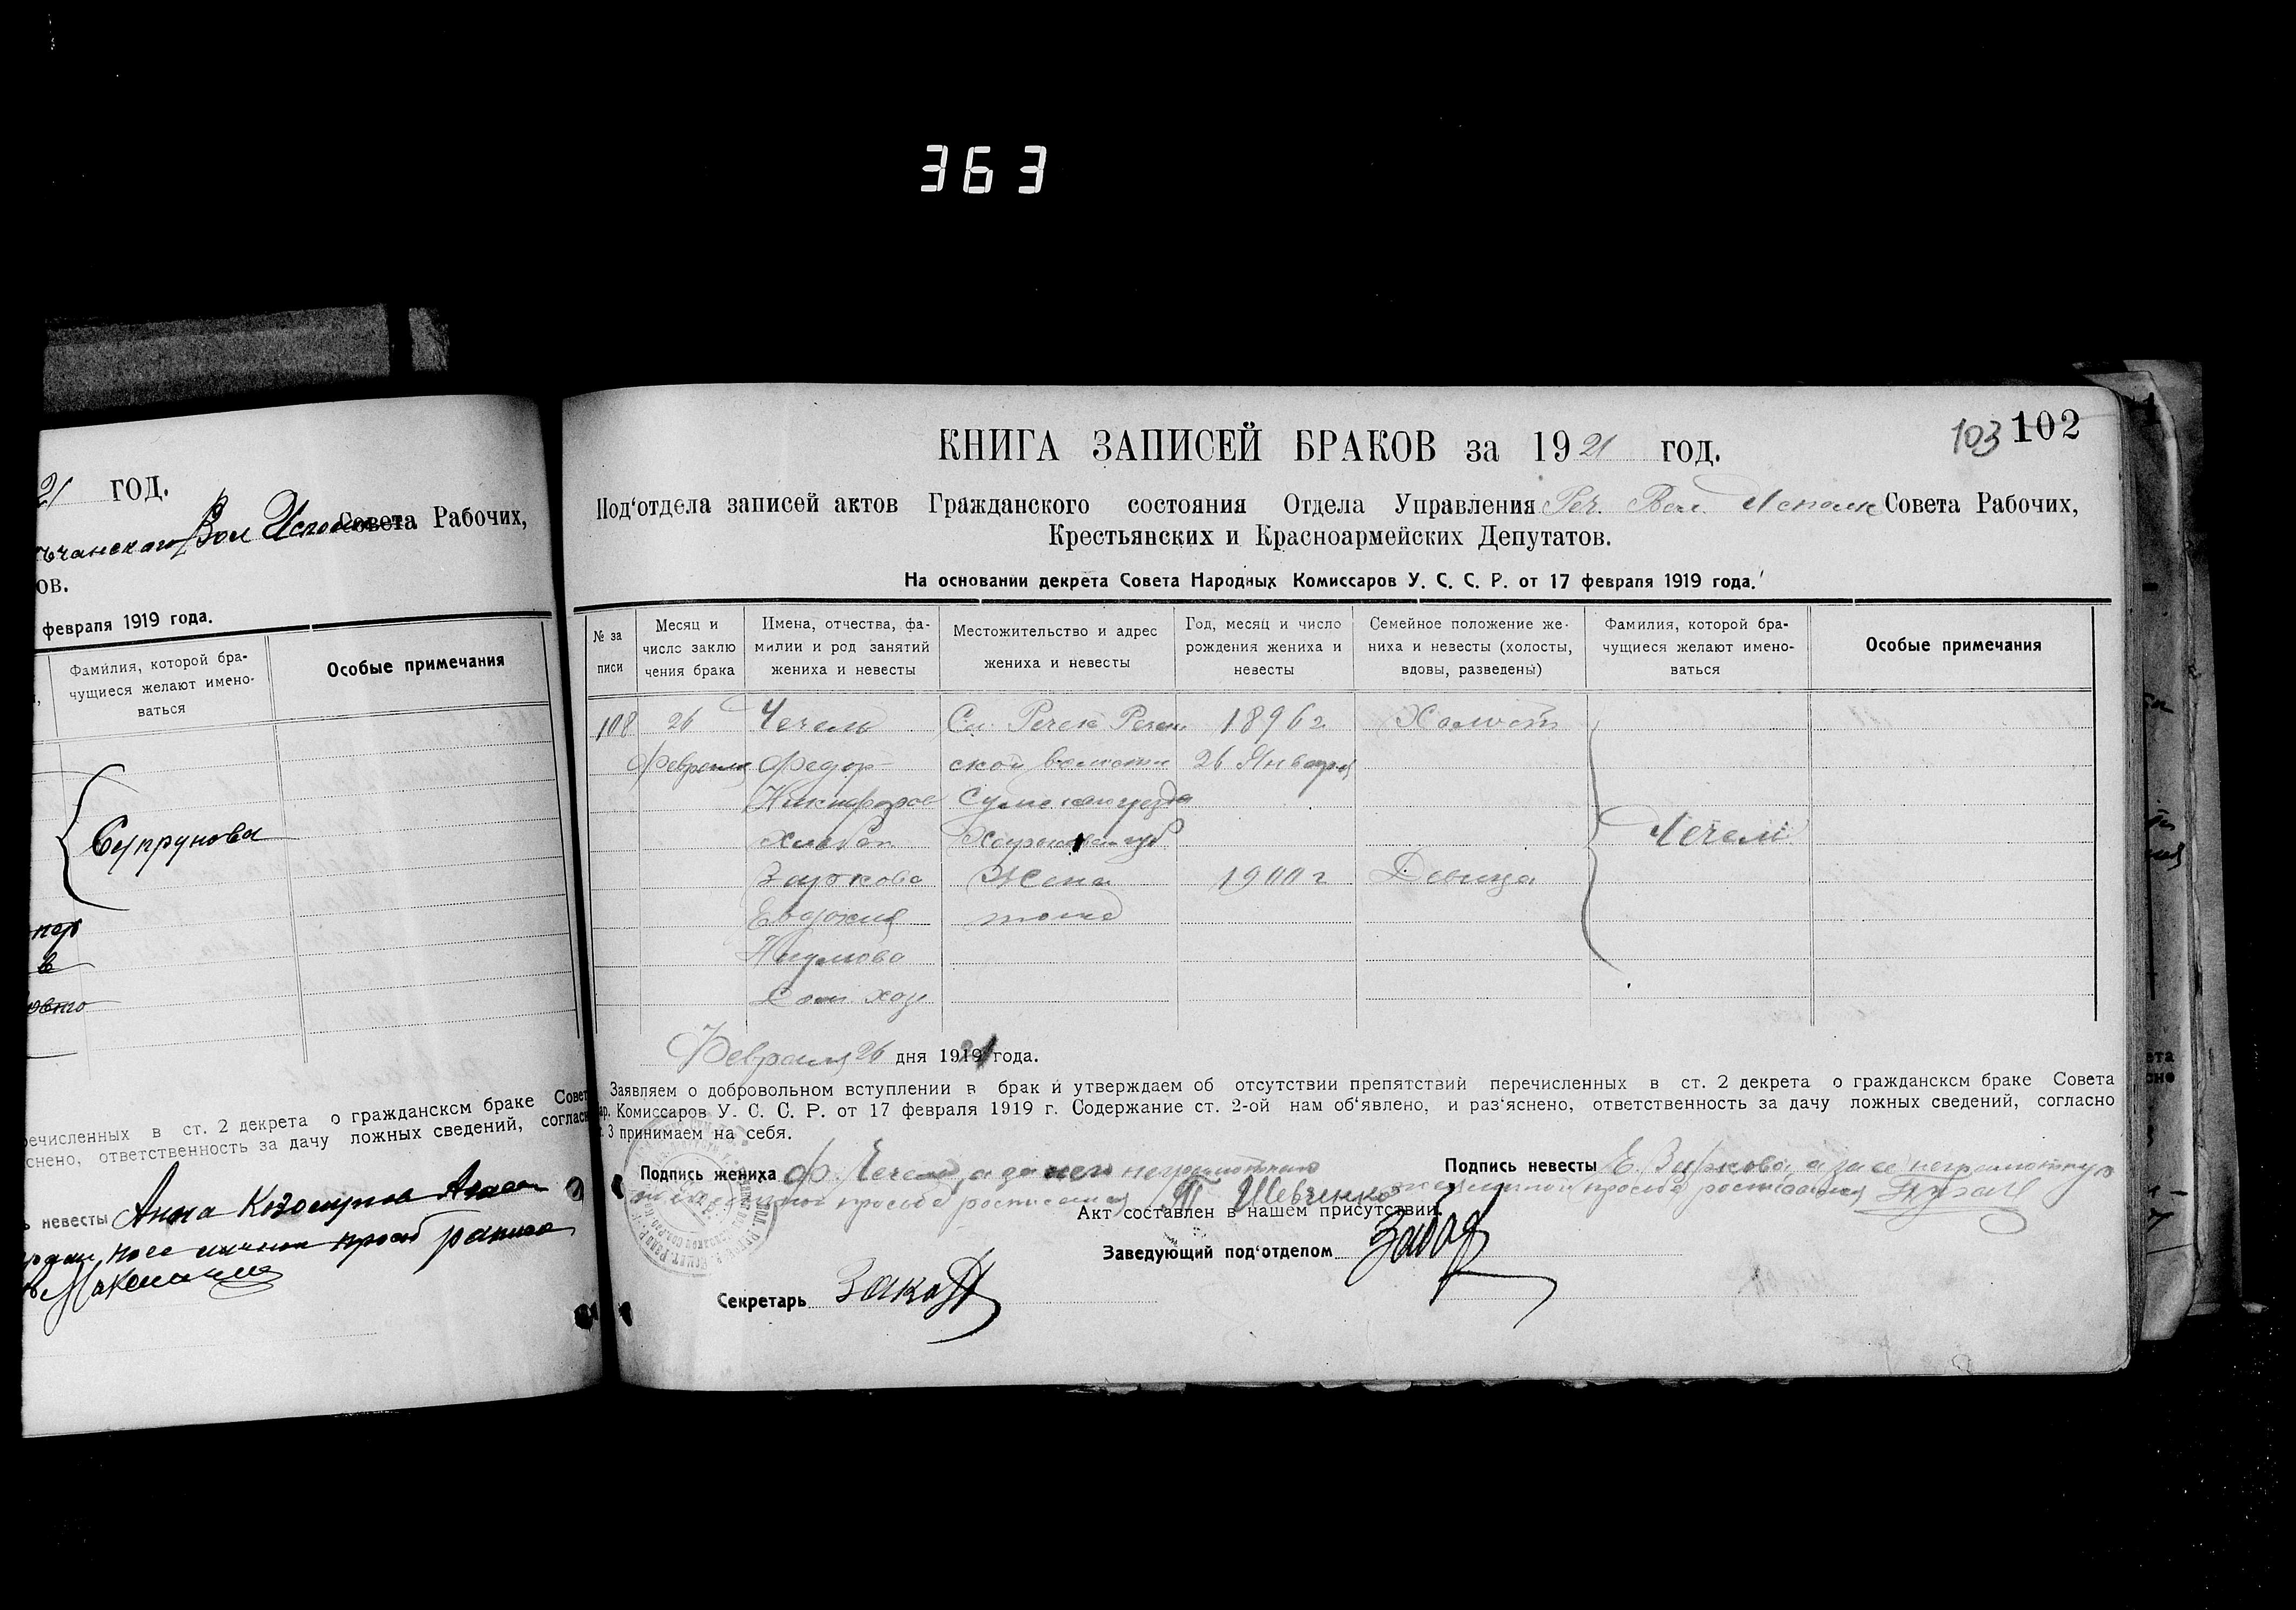 363
21 ГОД.
Вол Исполк Совета Рабочих,
ов.
февраля 1919 года.
Фамилия, которой бра-
чущиеся желают имено-
ваться
Особые примечания
Супрунова
речисленных в ст. 2 декрета о гражданском браке Совета
снено, ответственность за дачу ложных сведений, согласно
невесты Анна
103 102
КНИГА ЗАПИСЕЙ БРАКОВ за 1921 год.
Под'отдела записей актов Гражданского состояния Отдела Управления Реч. Вол. Исполк Совета Рабочих,
Крестьянских и Красноармейских Депутатов.
На основании декрета Совета Народных Комиссаров У. С. С. Р. от 17 февраля 1919 года.
№ за
писи
Месяц и
число заклю
чения брака
Имена, отчества, фа-
милии и род занятий
жениха и невесты
Местожительство и адрес
жениха и невесты
Год, месяц и число
рождения жениха и
невесты
Семейное положение же-
ниха и невесты (холосты,
вдовы, разведены)
Фамилия, которой бра-
чущиеся желают имено-
ваться
Особые примечания
108 26 Чечель Сл. Речек Речен 1896 г. Холост
Февраля Федор ской волости 26 Января
Никифоров Сумского уезда
Хлебоп Харьков губ Чечель
Зыркова Жена 1900 г Девица
Евдокия тоже
Наумова
Дом хоз
Февраля 26 дня 1921 года.
Заявляем о добровольном вступлении в брак и утверждаем об отсутствии препятствий перечисленных в ст. 2 декрета о гражданском браке Совета
ар. Комиссаров У. С. С. Р. от 17 февраля 1919 г. Содержание ст. 2-ой нам об'явлено, и раз'яснено, ответственность за дачу ложных сведений, согласно
3 принимаем на себя.
Подпись жениха Ф. Чечель, а за него неграмотного
по личной просьбе росписался Т Шевченко
Подпись невесты Е. Зыркова, а за ее неграмотную
по личной просьбе росписался
Акт составлен в нашем присутствии.
Заведующий под'отделом
Секретарь